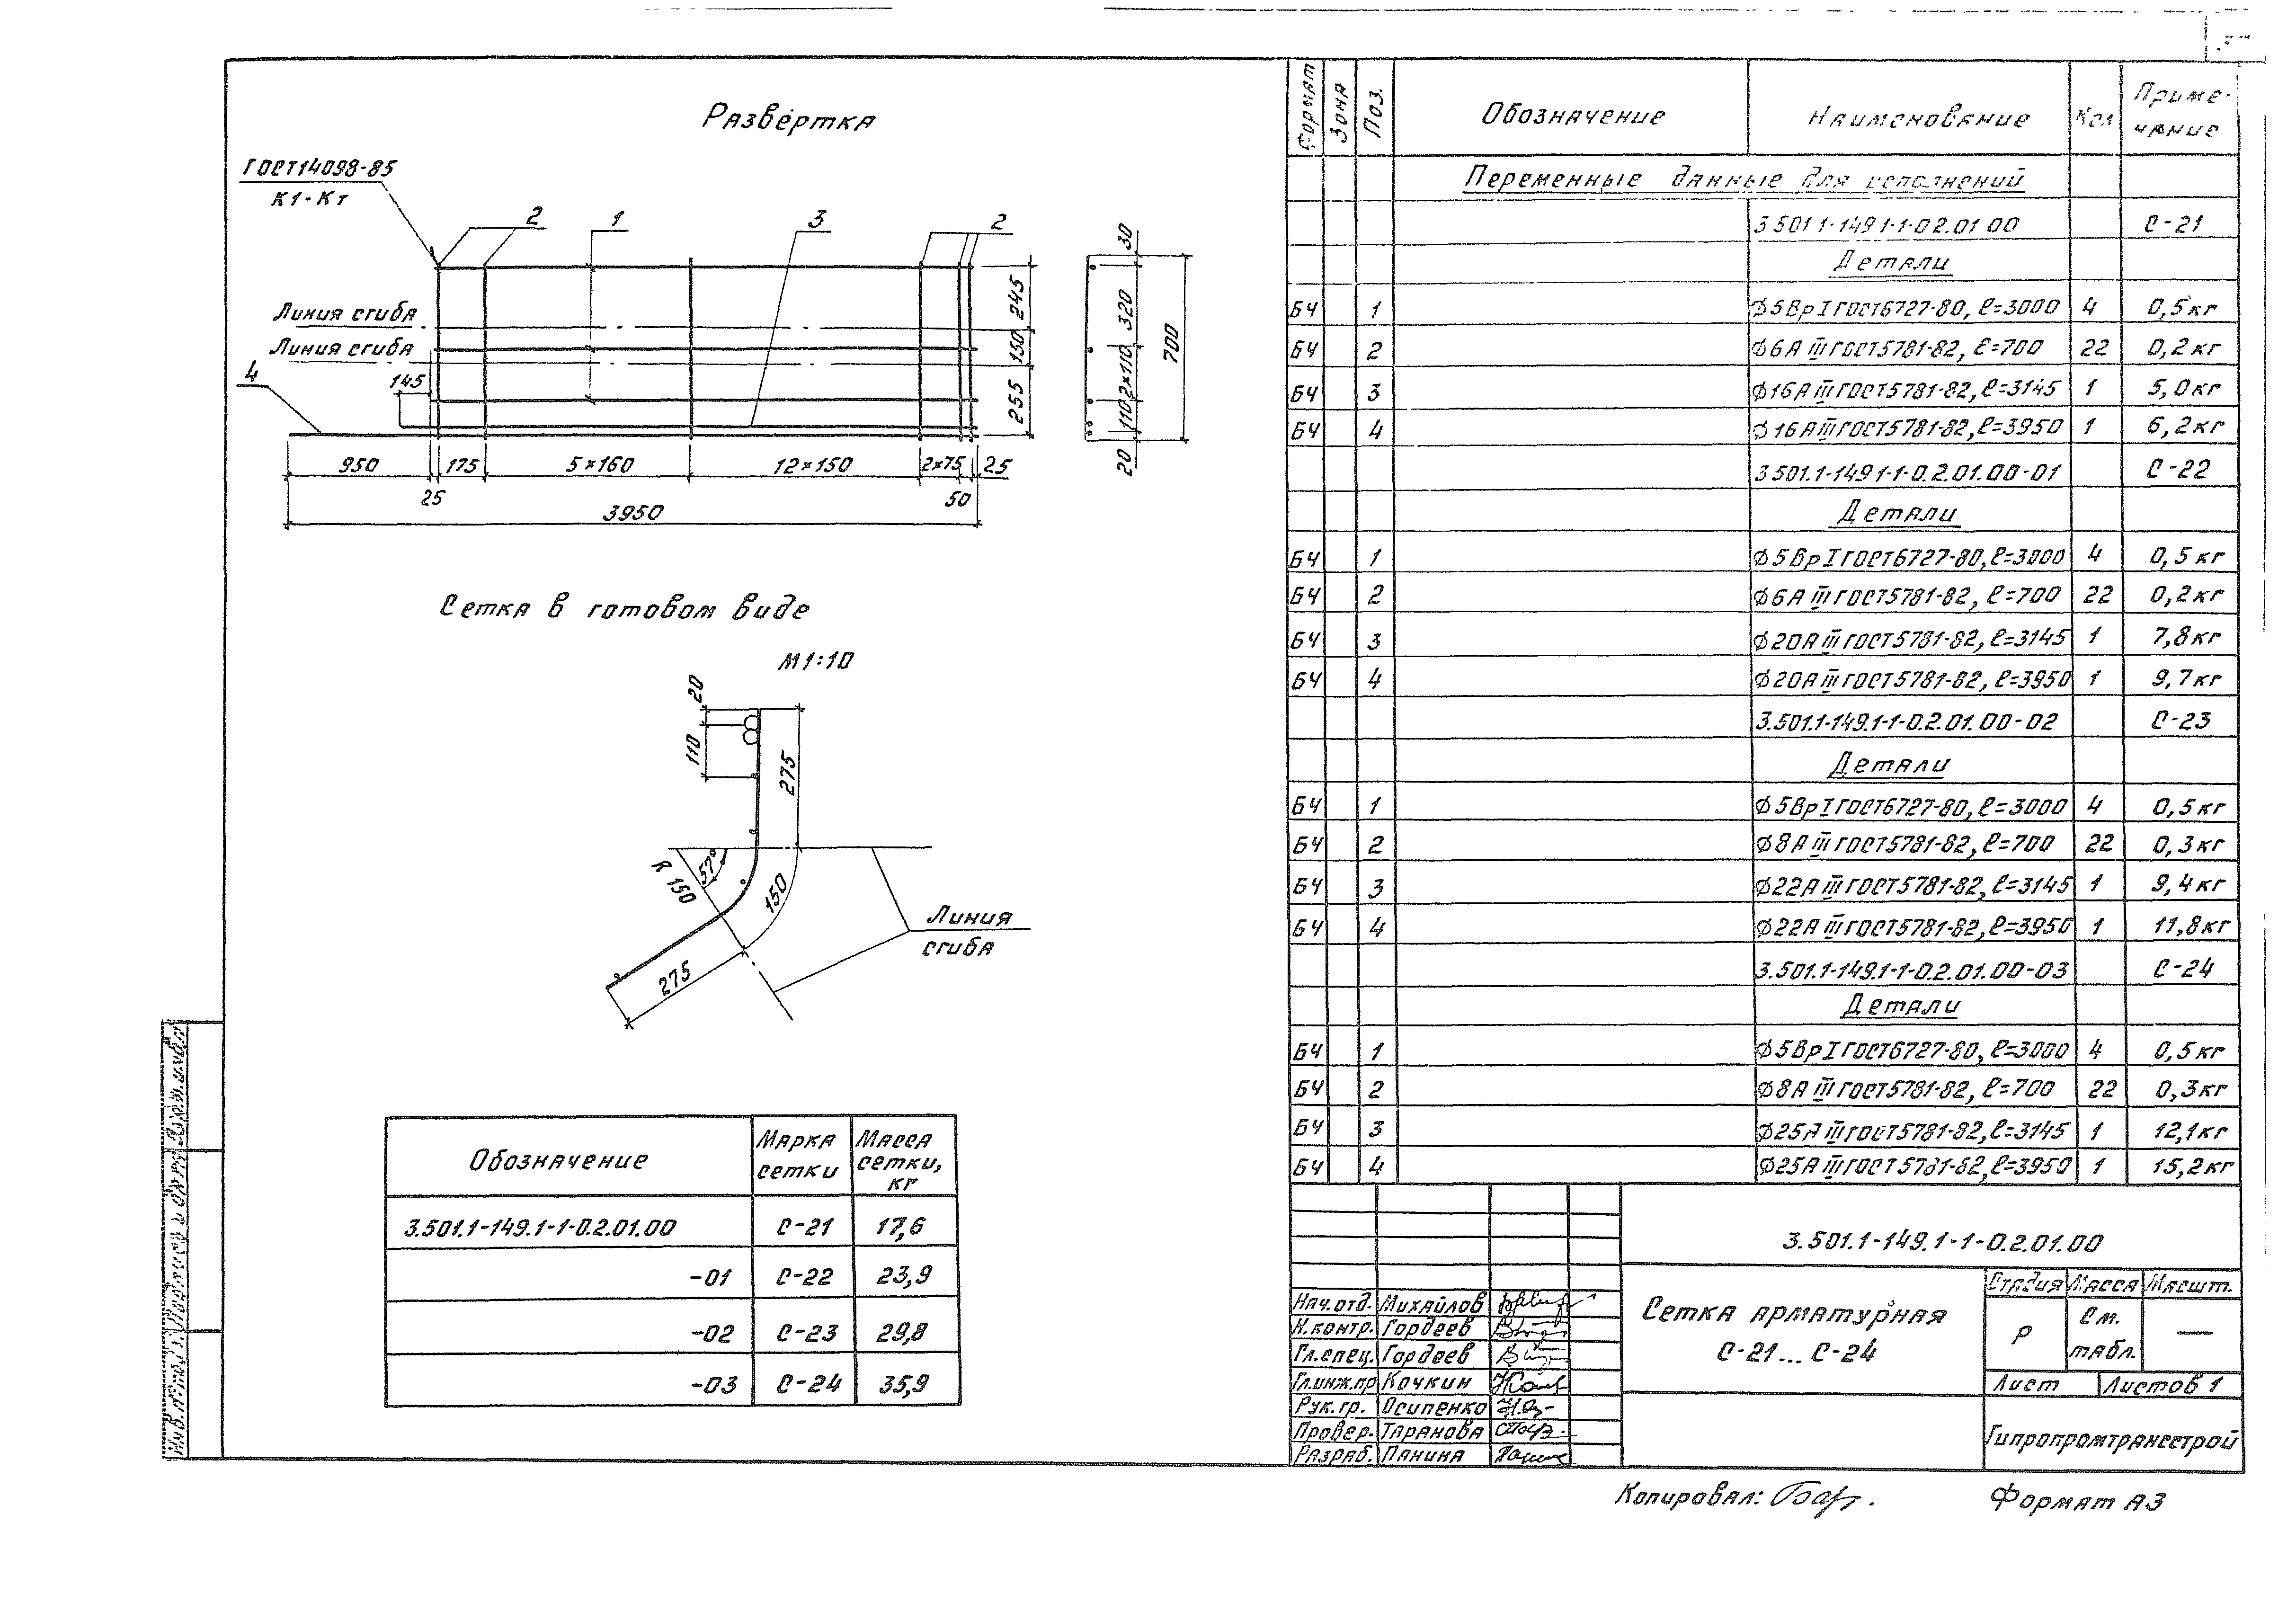 Развёртка
ГОСТ14098-85
К1-Кт
2
1
3
2
Линия сгиба
Линия сгиба
4
145
245
150
255
950
175
5×160
12×150
2×75
25
25
50
3950
30
320
2×110
110
20
700
Сетка в готовом виде
М1:10
20
110
275
57°
R 150
150
275
Линия
сгиба
Обозначение
Марка сетки
Масса сетки, кг
3.501.1-149.1-1-0.2.01.00 С-21 17,6
-01 С-22 23,9
-02 С-23 29,8
-03 С-24 35,9
Формат Зона Поз. Обозначение Наименование Кол Приме-
чание
Переменные данные для исполнений
3 501 1-149 1-1-0 2.01 00 С-21
Детали
БЧ 1 Ф5ВрI ГОСТ6727-80, ℓ=3000 4 0,5кг
БЧ 2 Ф6АIII ГОСТ5781-82, ℓ=700 22 0,2кг
БЧ 3 Ф16АIII ГОСТ5781-82, ℓ=3145 1 5,0кг
БЧ 4 Ф16АIII ГОСТ5781-82, ℓ=3950 1 6,2кг
3 501.1-149 1-1-0.2.01.00-01 С-22
Детали
БЧ 1 Ф5ВрI ГОСТ6727-80, ℓ=3000 4 0,5кг
БЧ 2 Ф6АIII ГОСТ5781-82, ℓ=700 22 0,2кг
БЧ 3 Ф20АIII ГОСТ5781-82, ℓ=3145 1 7,8кг
БЧ 4 Ф20АIII ГОСТ5781-82, ℓ=3950 1 9,7кг
3.501.1-149.1-1-0.2.01.00-02 С-23
Детали
БЧ 1 Ф5ВрI ГОСТ6727-80, ℓ=3000 4 0,5кг
БЧ 2 Ф8АIII ГОСТ5781-82, ℓ=700 22 0,3кг
БЧ 3 Ф22АIII ГОСТ5781-82, ℓ=3145 1 9,4кг
БЧ 4 Ф22АIII ГОСТ5781-82, ℓ=3950 1 11,8кг
3.501.1-149.1-1-0.2.01.00-03 С-24
Детали
БЧ 1 Ф5ВрI ГОСТ6727-80, ℓ=3000 4 0,5кг
БЧ 2 Ф8АIII ГОСТ5781-82, ℓ=700 22 0,3кг
БЧ 3 Ф25АIII ГОСТ5781-82, ℓ=3145 1 12,1кг
БЧ 4 Ф25АIII ГОСТ5781-82, ℓ=3950 1 15,2кг
3.501.1-149.1-1-0.2.01.00
Нач.отд. Михайлов
Н.контр. Гордеев
Гл.спец. Гордеев
Гл.инж.пр Кочкин
Рук.гр. Осипенко
Провер. Таранова
Разраб. Панина
Сетка арматурная
С-21... С-24
Стадия Масса Масшт.
Р См. табл. —
Лист Листов 1
Гипропромтрансстрой
Копировал:
Формат А3